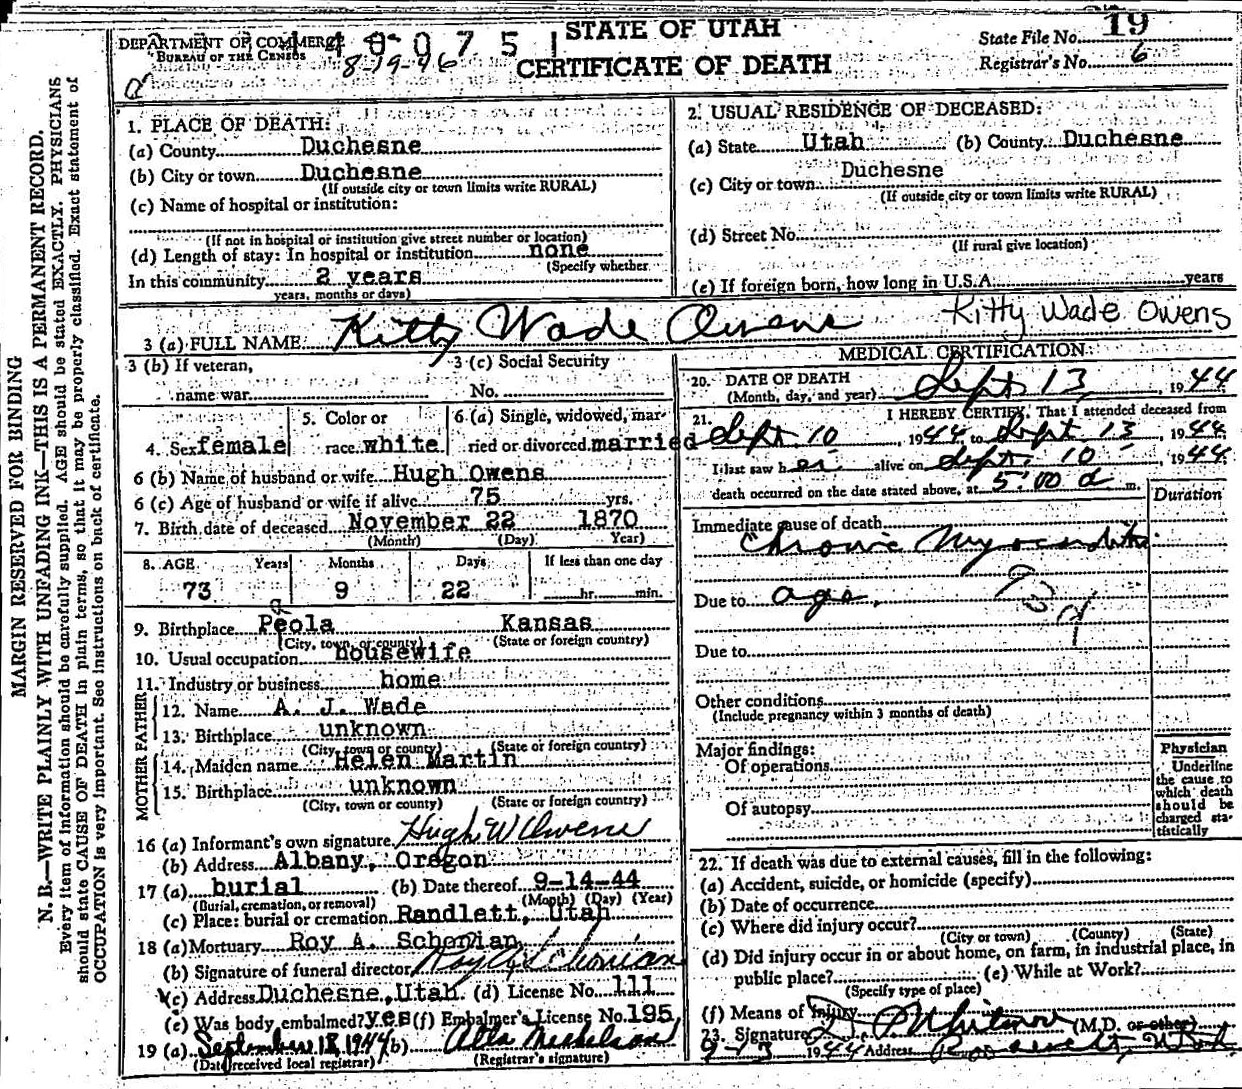 STATE OF UTAH
CERTIFICATE OF DEATH
DEPARTMENT OF COMMERCE
BUREAU OF THE CENSUS
0 7 5 1
State File No. 19
Registrar's No. 6
MARGIN RESERVED FOR BINDING
N. B.—WRITE PLAINLY WITH UNFADING INK—THIS IS A PERMANENT RECORD.
Every item of information should be carefully supplied. AGE should be stated EXACTLY. PHYSICIANS
should state CAUSE OF DEATH in plain terms, so that it may be properly classified. Exact statement of
OCCUPATION is very important. See instructions on back of certificate.
1. PLACE OF DEATH:
(a) County Duchesne
(b) City or town Duchesne
(If outside city or town limits write RURAL)
(c) Name of hospital or institution:
(If not in hospital or institution give street number or location)
(d) Length of stay: In hospital or institution none
(Specify whether
In this community 2 years
years, months or days)
2. USUAL RESIDENCE OF DECEASED:
(a) State Utah (b) County Duchesne
(c) City or town Duchesne
(If outside city or town limits write RURAL)
(d) Street No.
(If rural give location)
(e) If foreign born, how long in U.S.A. years
3 (a) FULL NAME Kitty Wade Owens Kitty Wade Owens
3 (b) If veteran,
name war
3 (c) Social Security
No.
4. Sex female
5. Color or
race white
6 (a) Single, widowed, mar-
ried or divorced married
6 (b) Name of husband or wife Hugh Owens
6 (c) Age of husband or wife if alive 75 yrs.
7. Birth date of deceased November 22 1870
(Month) (Day) Year)
8. AGE Years Months Days If less than one day
73 9 22 hr. min.
9. Birthplace Peola Kansas
(City, town, or county) (State or foreign country)
10. Usual occupation housewife
11. Industry or business home
FATHER
12. Name A. J. Wade
13. Birthplace unknown
(City, town or county) (State or foreign country)
MOTHER
14. Maiden name Helen Martin
15. Birthplace unknown
(City, town or county) (State or foreign country)
16 (a) Informant's own signature Hugh W Owens
(b) Address Albany, Oregon
17 (a) burial (b) Date thereof 9-14-44
(Burial, cremation, or removal) (Month) (Day) (Year)
(c) Place: burial or cremation Randlett, Utah
18 (a) Mortuary Roy A. Schonian
(b) Signature of funeral director Roy A Schonian
(c) Address Duchesne, Utah (d) License No. 111
(e) Was body embalmed? yes (f) Embalmer's License No. 195
19 (a) September 18, 1944 (b) Alta Mickelson
(Date received local registrar) (Registrar's signature)
MEDICAL CERTIFICATION
20. DATE OF DEATH
(Month, day, and year) Sept 13, 1944
21. I HEREBY CERTIFY, That I attended deceased from
Sept 10, 1944 to Sept 13, 1944
I last saw her alive on Sept. 10, 1944
death occurred on the date stated above, at 5:00 a m.
Duration
Immediate cause of death
Chronic Myocarditis
Due to age.
93d
Due to
Other conditions
(Include pregnancy within 3 months of death)
Major findings:
Of operations
Of autopsy
Physician
Underline
the cause to
which death
should be
charged sta-
tistically
22. If death was due to external causes, fill in the following:
(a) Accident, suicide, or homicide (specify)
(b) Date of occurrence
(c) Where did injury occur?
(City or town) (County) (State)
(d) Did injury occur in or about home, on farm, in industrial place, in
public place? (e) While at Work?
(Specify type of place)
(f) Means of Injury
23. Signature Whitmore (M.D. or other)
9-13 1944 Address Roosevelt, Utah